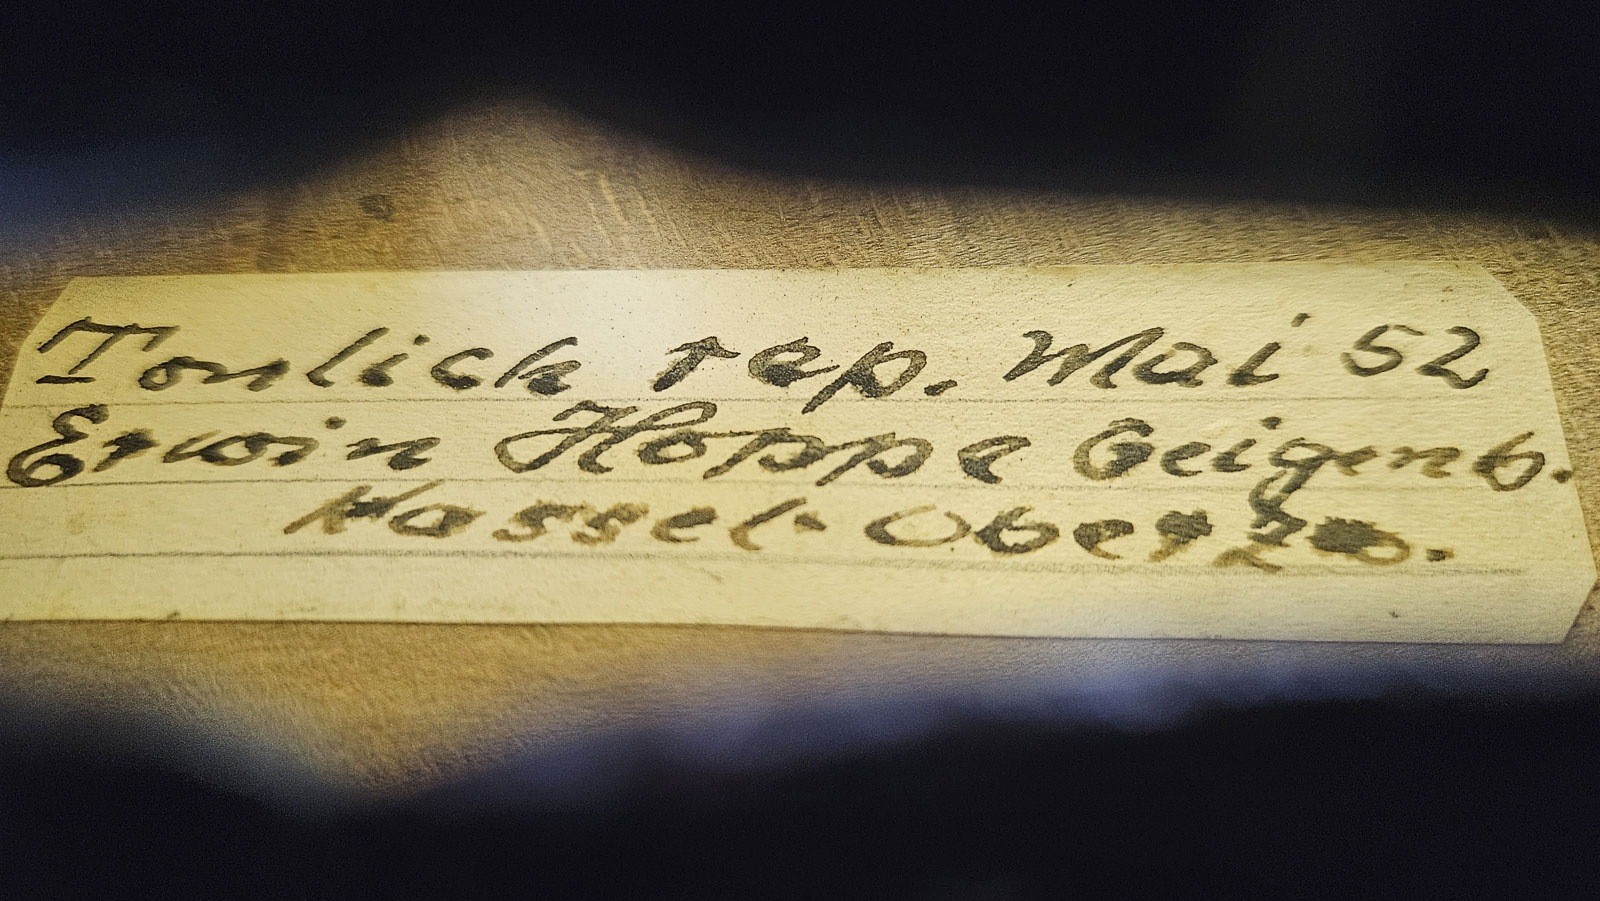 Tonlich rep. Mai 52
Erwin Hoppe Geigenb.
Kassel-